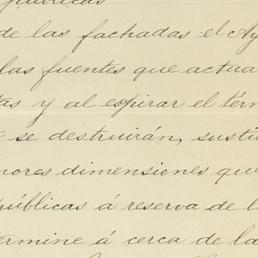 públicas
de las fachadas el Ay
las fuentes que actua
tas y al espirar el térm
se destruirán, susti
nores dimensiones que
públicas á reserva de l
termine á cerca de la